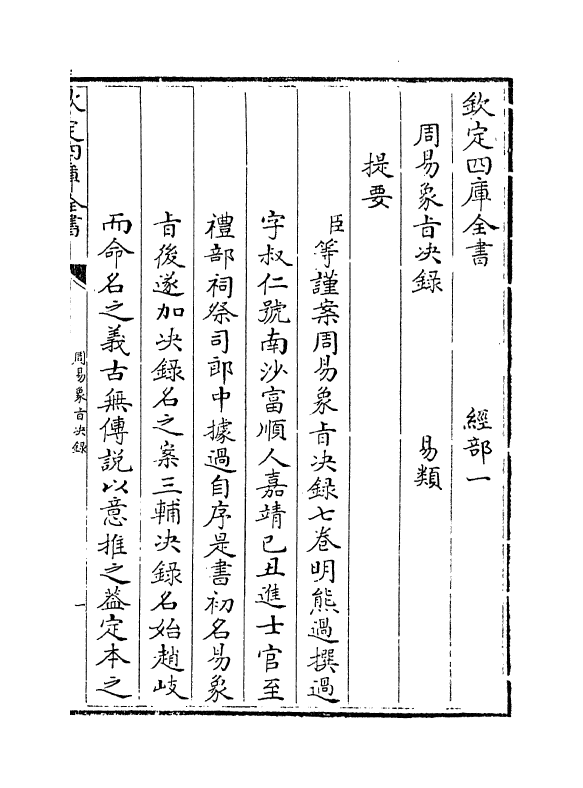 欽定四庫全書　經部一
周易象旨決録　易類
提要
臣等謹案周易象旨決録七卷明熊過撰過
字叔仁號南沙富順人嘉靖己丑進士官至
禮部祠祭司郎中據過自序是書初名易象
旨後遂加決録名之案三輔決録名始趙岐
而命名之義古無傳説以意推之葢定本之
欽定四庫全書
周易象旨決録
一